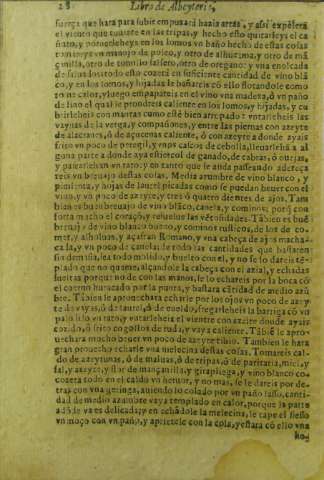 28 Libro de Albeyteri
fuerça que hara para subir empuxará hazia atras, y assi expelerá
el viento que tuuiere en las tripas, y hecho esto quitarleys el ca
ñuto, y ponerleheys en los lomos vn baño hecho de estas cosas
con un manojo de poleo, y otro de alhuzema, y otro de mã
ganilla, otro de tomillo salsero, otro de oregano: y vna
de todo esto cozerá en suficiente cantidad de vino blã
co, y en los lomos, y hijadas le bañareis cõ ello flotandole como
en calor, y luego empapareis en el vino vna manta, ó vn paño
de lino el qual le prondreis caliente en los lomos, y hijadas, y cu
birleheis con mantas como esté bien arropado: vntarleheis las
vaynas de la verga, y compañones, y entre las piernas con azeyte
de alacranes, ó de açucenas caliente, ó con azeyte a donde ayais
frito vn poco de peregil, y vnos cascos de cebolla, lleuarleheis a al
guna parte a donde aya estiercol de ganado, de cabras, ó ouejas,
y passearlehan vn rato: y en tanto que le anda passeando adereça
reis vn breuajo destas cosas. Medio azumbre de vino blanco, y
pimienta, y hojas de laurel picadas como se puedan beuer con el
vino, y vn poco de azeyte, y tres ó quatro dientes de ajos. Tam
bien es bueno breuajo de vino blãco, canela, y cominos, porq̃ con
forta mucho el coraçõ, y resuelue las vẽtosidades. Tãbien es buẽ
breuajo de vino blanco bueno, y cominos rusticos, de los de co-
mer, y alholuas, y açafran Romano, y vna cabeça de ajos macha-
cada, y vn poco de canela: de todo las cantidades que bastaren
sin demasia, sea todo molido, y buelto con el, y no se lo dareis tẽ-
plado que no queme, alçandole la cabeça con el azial, y echadas
sueltas porque no dé con las manos, se lo echareis por la boca cõ
el cuerno huracado por la punta, y bastara cãtidad de medio azũ
bre. Tãbien le aprouechara echarle por los ojos vn poco de azey
te de ó de laurel, ó de eneldo, fregarleheis la barriga cõ vn
palo liso vn rato, y vntarleheis el vientre con azeite donde ayais
cozido, ó frito cogollos de ruda, y vaya caliente. Tãbiẽ le apro-
uechara mucho beuer vn poco de azeyte tibio. Tambien le hara
gran prouecho echarle vna melecina destas cosas. Tomareis cal-
do de azeytunas, ó de maluas, ó de tripas, ó de paritaria, miel, y
sal, y azeyte, y flor de mançanilla, y girapliega, y vino blanco co-
zera todo en el caldo vn heruor, y no mas, se le dareis por de-
tras con vna geringa, auiendo lo colado por vn paño lasso, canti-
dad de medio azumbre vaya templado en calor, porque la parte
adõ le va es delicada, y en echãdole la melecina, le tape el siesso
vn moço con vn paño, y aprietele con la cola, y estara cõ ello vna
ho-